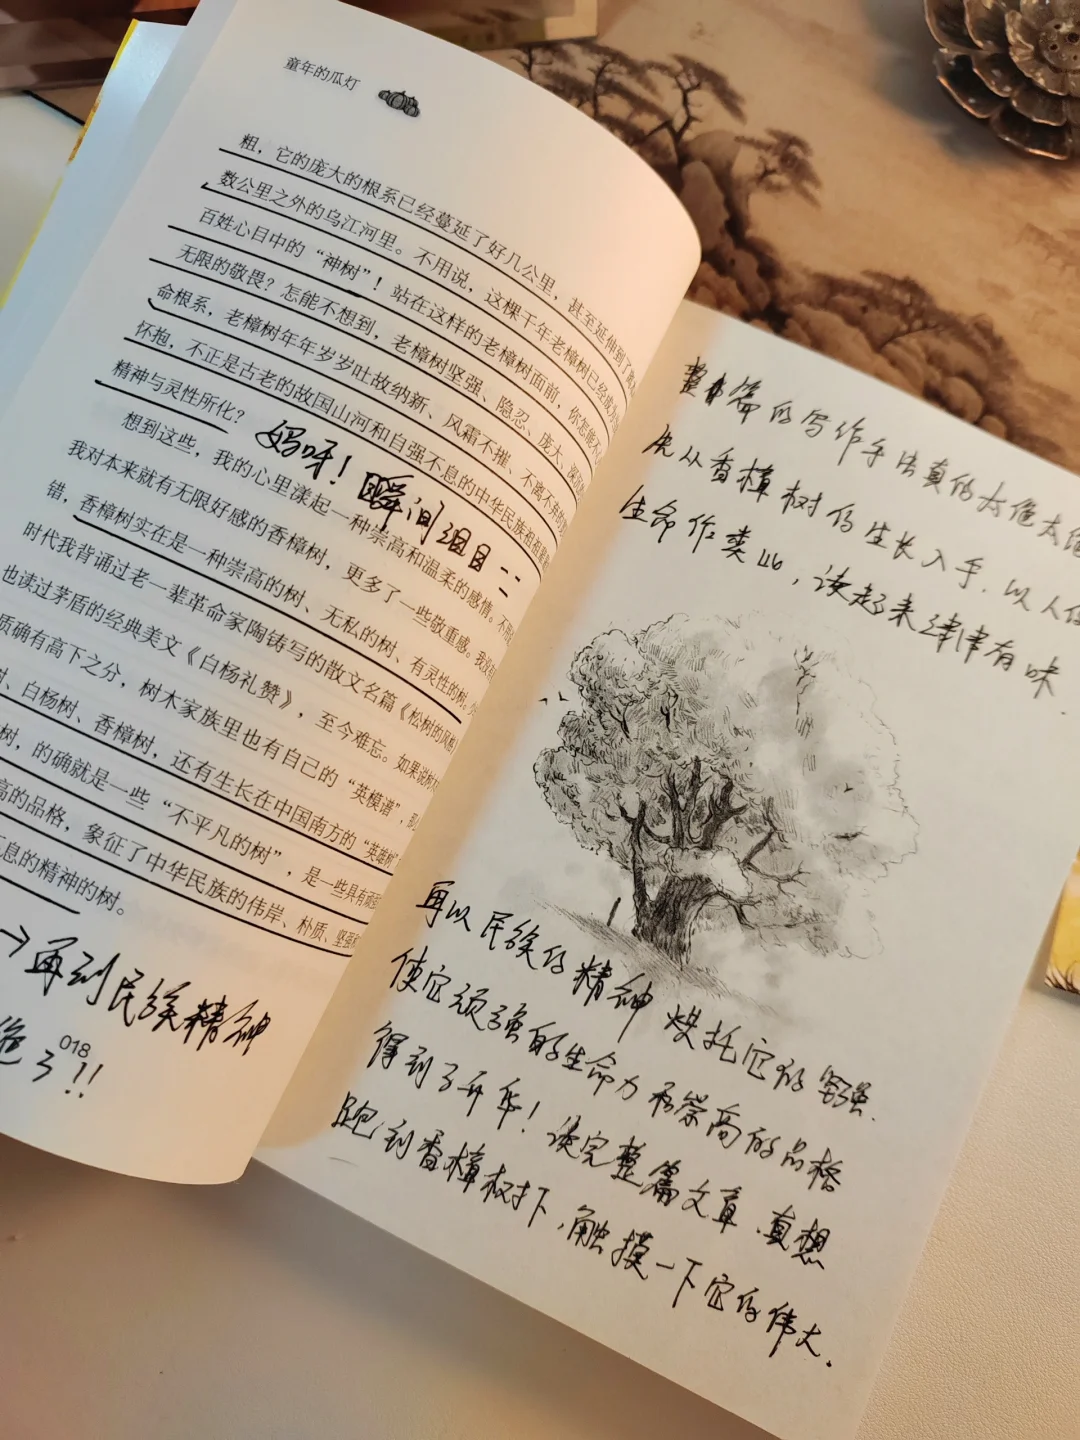 童年的瓜灯
粗，它的庞大的根系已经蔓延了好几公里，甚至延伸到了
数公里之外的乌江河里。不用说，这棵千年老樟树已经成为
百姓心目中的“神树”！站在这样的老樟树面前，你怎能不
无限的敬畏？怎能不想到，老樟树坚强、隐忍、庞大、深沉的
命根系，老樟树年年岁岁吐故纳新、风霜不摧、不离不弃的
怀抱，不正是古老的故国山河和自强不息的中华民族祖祖辈辈
精神与灵性所化？
妈呀！瞬间泪目
想到这些，我的心里漾起一种崇高和温柔的感情。不
我对本来就有无限好感的香樟树，更多了一些敬重感。我
错，香樟树实在是一种崇高的树、无私的树、有灵性的树。
时代我背诵过老一辈革命家陶铸写的散文名篇《松树的风格
也读过茅盾的经典美文《白杨礼赞》，至今难忘。如果说
质确有高下之分，树木家族里也有自己的“英模谱”，
、白杨树、香樟树，还有生长在中国南方的“英雄树
树，的确就是一些“不平凡的树”，是一些具有
高的品格，象征了中华民族的伟岸、朴质、坚强
息的精神的树。
→再到民族精神
绝了!!
018
整篇的写作手法真的太绝太绝
先从香樟树的生长入手，以人的
生命作类比，读起来津津有味.
再以民族的精神 烘托它的坚强.
使它顽强的生命力和崇高的品格
得到了升华！读完整篇文章.真想
跑到香樟树下，触摸一下它的伟大.